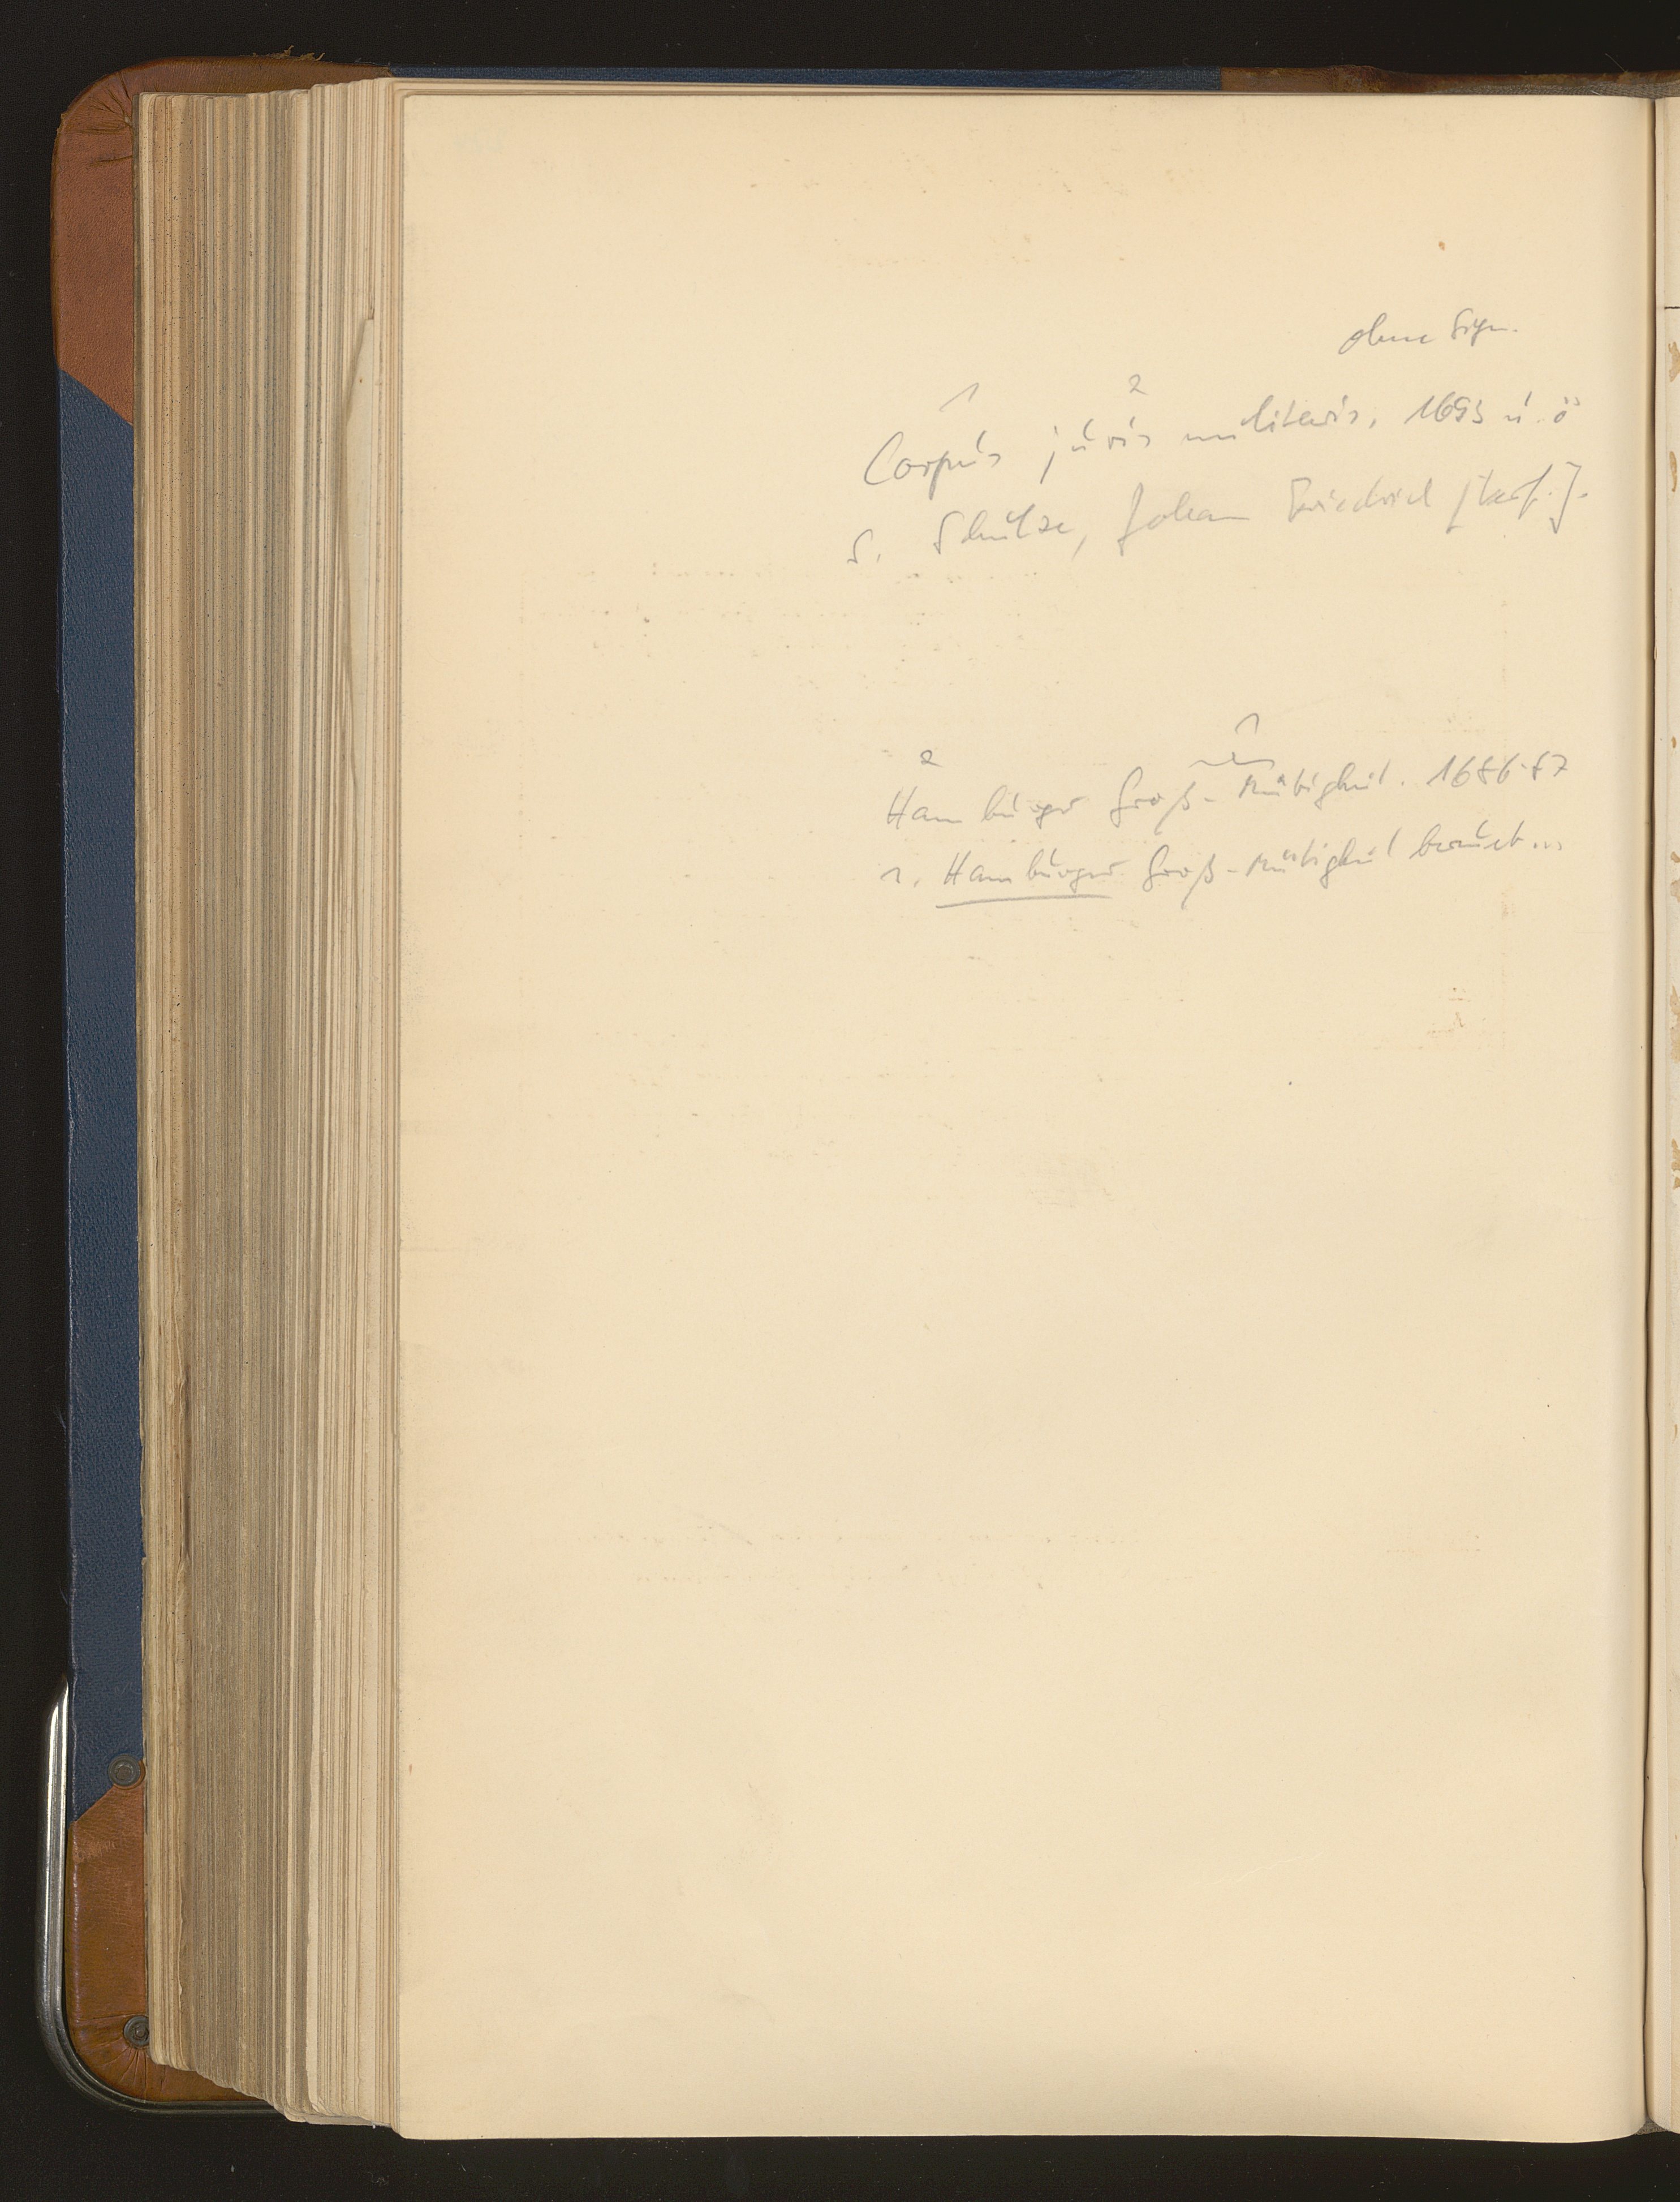 ohne Sign.
1 2
Corpus juris militaris, 1693 u. ö
S. Schultze, Johann Friedrich [Verf.].
2 1
Hamburger Groß-Mütigkeit. 1686-87
s. Hamburger Groß-Mütigkeit braucht...